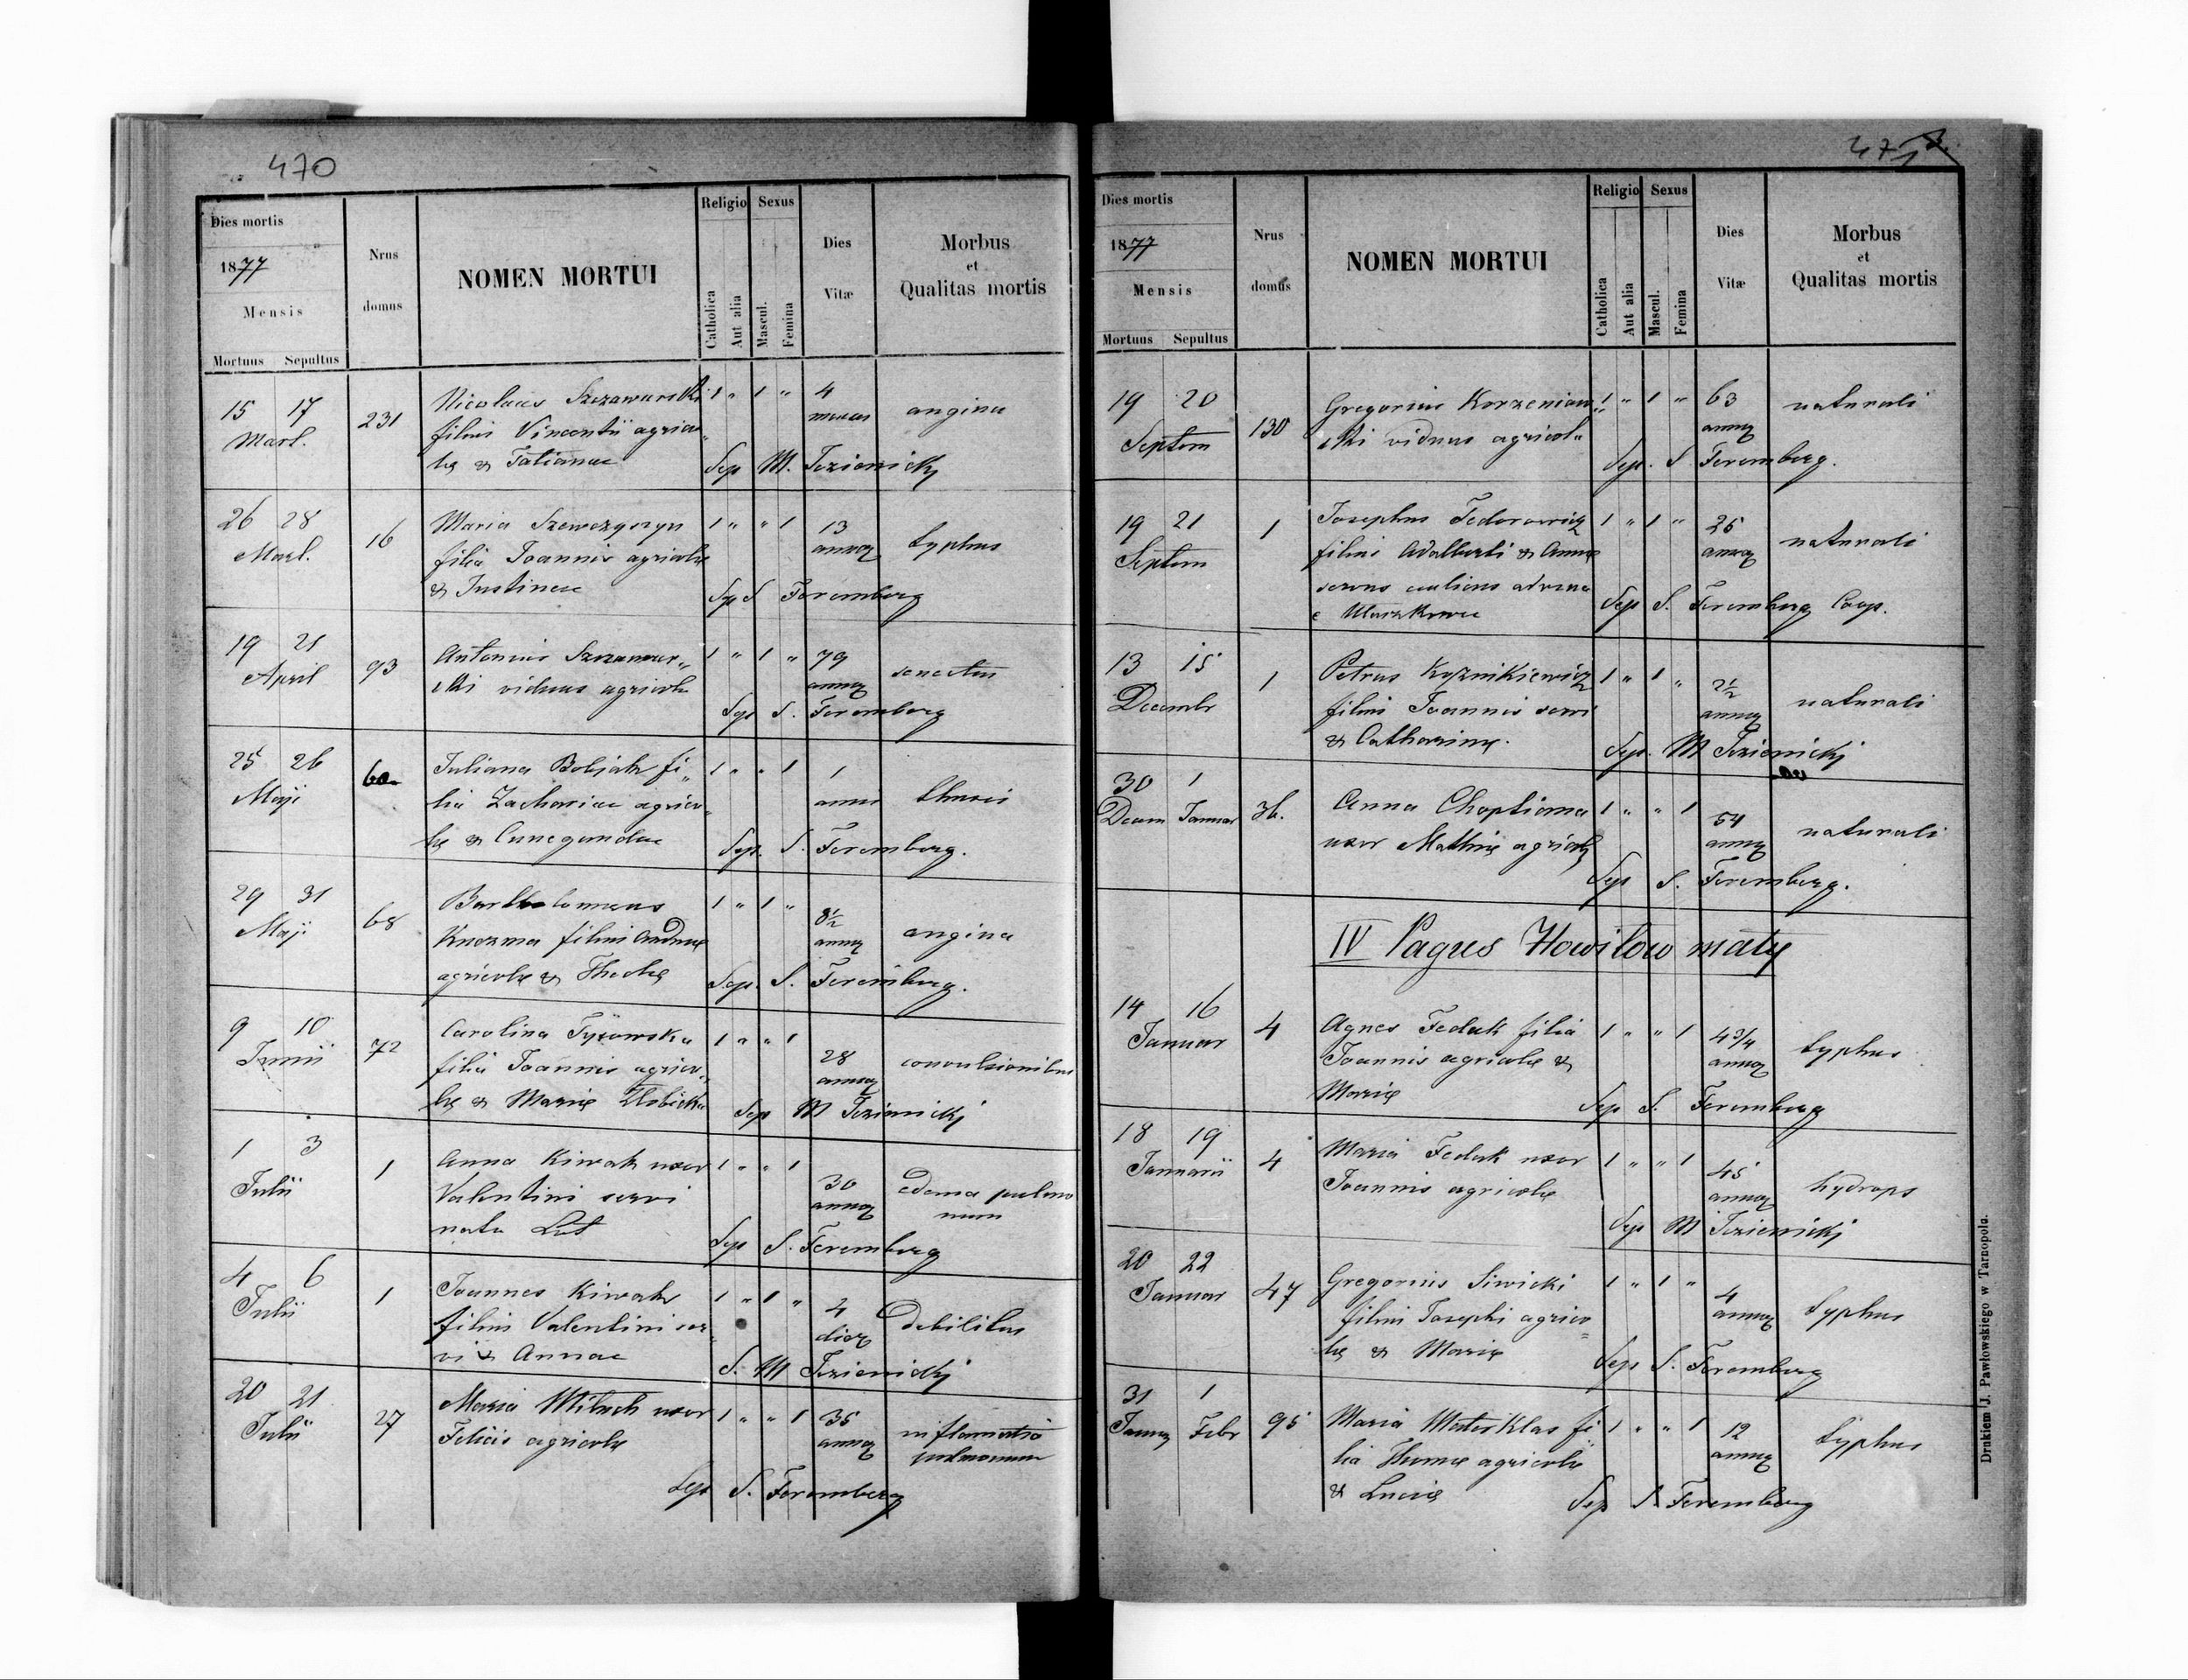 470
Dies mortis
1877
Mensis
Mortuus Sepultus
Nrus
domus
NOMEN MORTUI
Religio
Catholica
Aut alia
Sexus
Mascul.
Femina
Dies
Vitæ
Morbus
et
Qualitas mortis
15 17 231 Nicolaus Szczawurski 1 " 1 " 4 angina
Mart. filius Vincentii agrico„
læ & Tatianae Sep M. Tezienickj
26 28 16 Maria Szewczyszyn 1 " " 1 13 typhus
Mart. filia Joannis agricolæ annor
& Justinae Sep S Feremberg
19 21 93 Antonius Szczawur„ 1 " 1 " 79 senectus
April ski viduus agricola annor
Sep S. Feremberg
25 26 60 Juliana Bobiak fi„ 1 " " 1 1
Maji lia Zachariae agrico„ annus
læ & Cunegundae Sep. S. Feremberg.
29 31 68 Bartholomaeus 1 " 1 " 8½ angina
Maji Kuczma filius Andreæ annor
agricolæ & Theclæ Sep. S. Feremberg.
9 10 72 Carolina Tyrowska 1 " " 1 28 convulsionibus
Junii filia Joannis agrico„ annor
læ & Mariæ Sep M Tezienickj
1 3 1 Anna Kiwak uxor 1 " " 1 30 edema pulmo
Julii Valentini servi annor num
nata Lot Sep S. Feremberg
4 6 1 Joannes Kiwak 1 " 1 " 4 Debilitas
Julii filius Valentini ser„ dier
vi & Annae S. M Tezienickj
20 21 27 Maria Milech uxor 1 " " 1 35 inflamatio
Julii Felicis agricolæ annor pulmonum
Sep S. Feremberg
471
Dies mortis
1877
Mensis
Mortuus Sepultus
Nrus
domus
NOMEN MORTUI
Religio
Catholica
Aut alia
Sexus
Mascul.
Femina
Dies
Vitæ
Morbus
et
Qualitas mortis
19 20 130 Gregorius Korzeniow„ 1 " 1 " 63 naturali
Septem ski viduus agricol„ annor
Sep. S Feremberg.
19 21 1 Josephus Fedorowicz 1 " 1 " 25 naturali
Septem filius Adalberti & Annæ annor
servus advena
e Uluszkowce Sep S. Feremberg Coop.
13 15 1 Petrus Kuznikiewicz 1 " 1 " 2½ naturali
Decembr filius Joannis servi annor
& Catharinæ. Sep. M Tezienickj
30 1 36. Anna Choptiana 1 " " 1 54 naturali
Decem Januar uxor Mathiæ agricolæ annor
Sep S. Feremberg.
IV Pagus Howilow mały
14 16 4 Agnes Feduk filia 1 " " 1 4¾ typhus
Januar Joannis agricolæ & annor
Mariæ Sep S. Feremberg
18 19 4 Maria Feduk uxor 1 " " 1 45 hydrops
Januarii Joannis agricolæ annor
Sep M Tezienickj
20 22 47 Gregorius Siwicki 1 " 1 " 4 typhus
Januar filius Josephi agrico„ annor
læ & Mariæ Sep S. Feremberg
31 1 95 Maria Materklas fi„ 1 " " 1 12 typhus
Januar Febr lia Thomæ agricolæ annor
& Luciæ Sep S Feremberg
Drukiem J. Pawłowskiego w Tarnopolu.